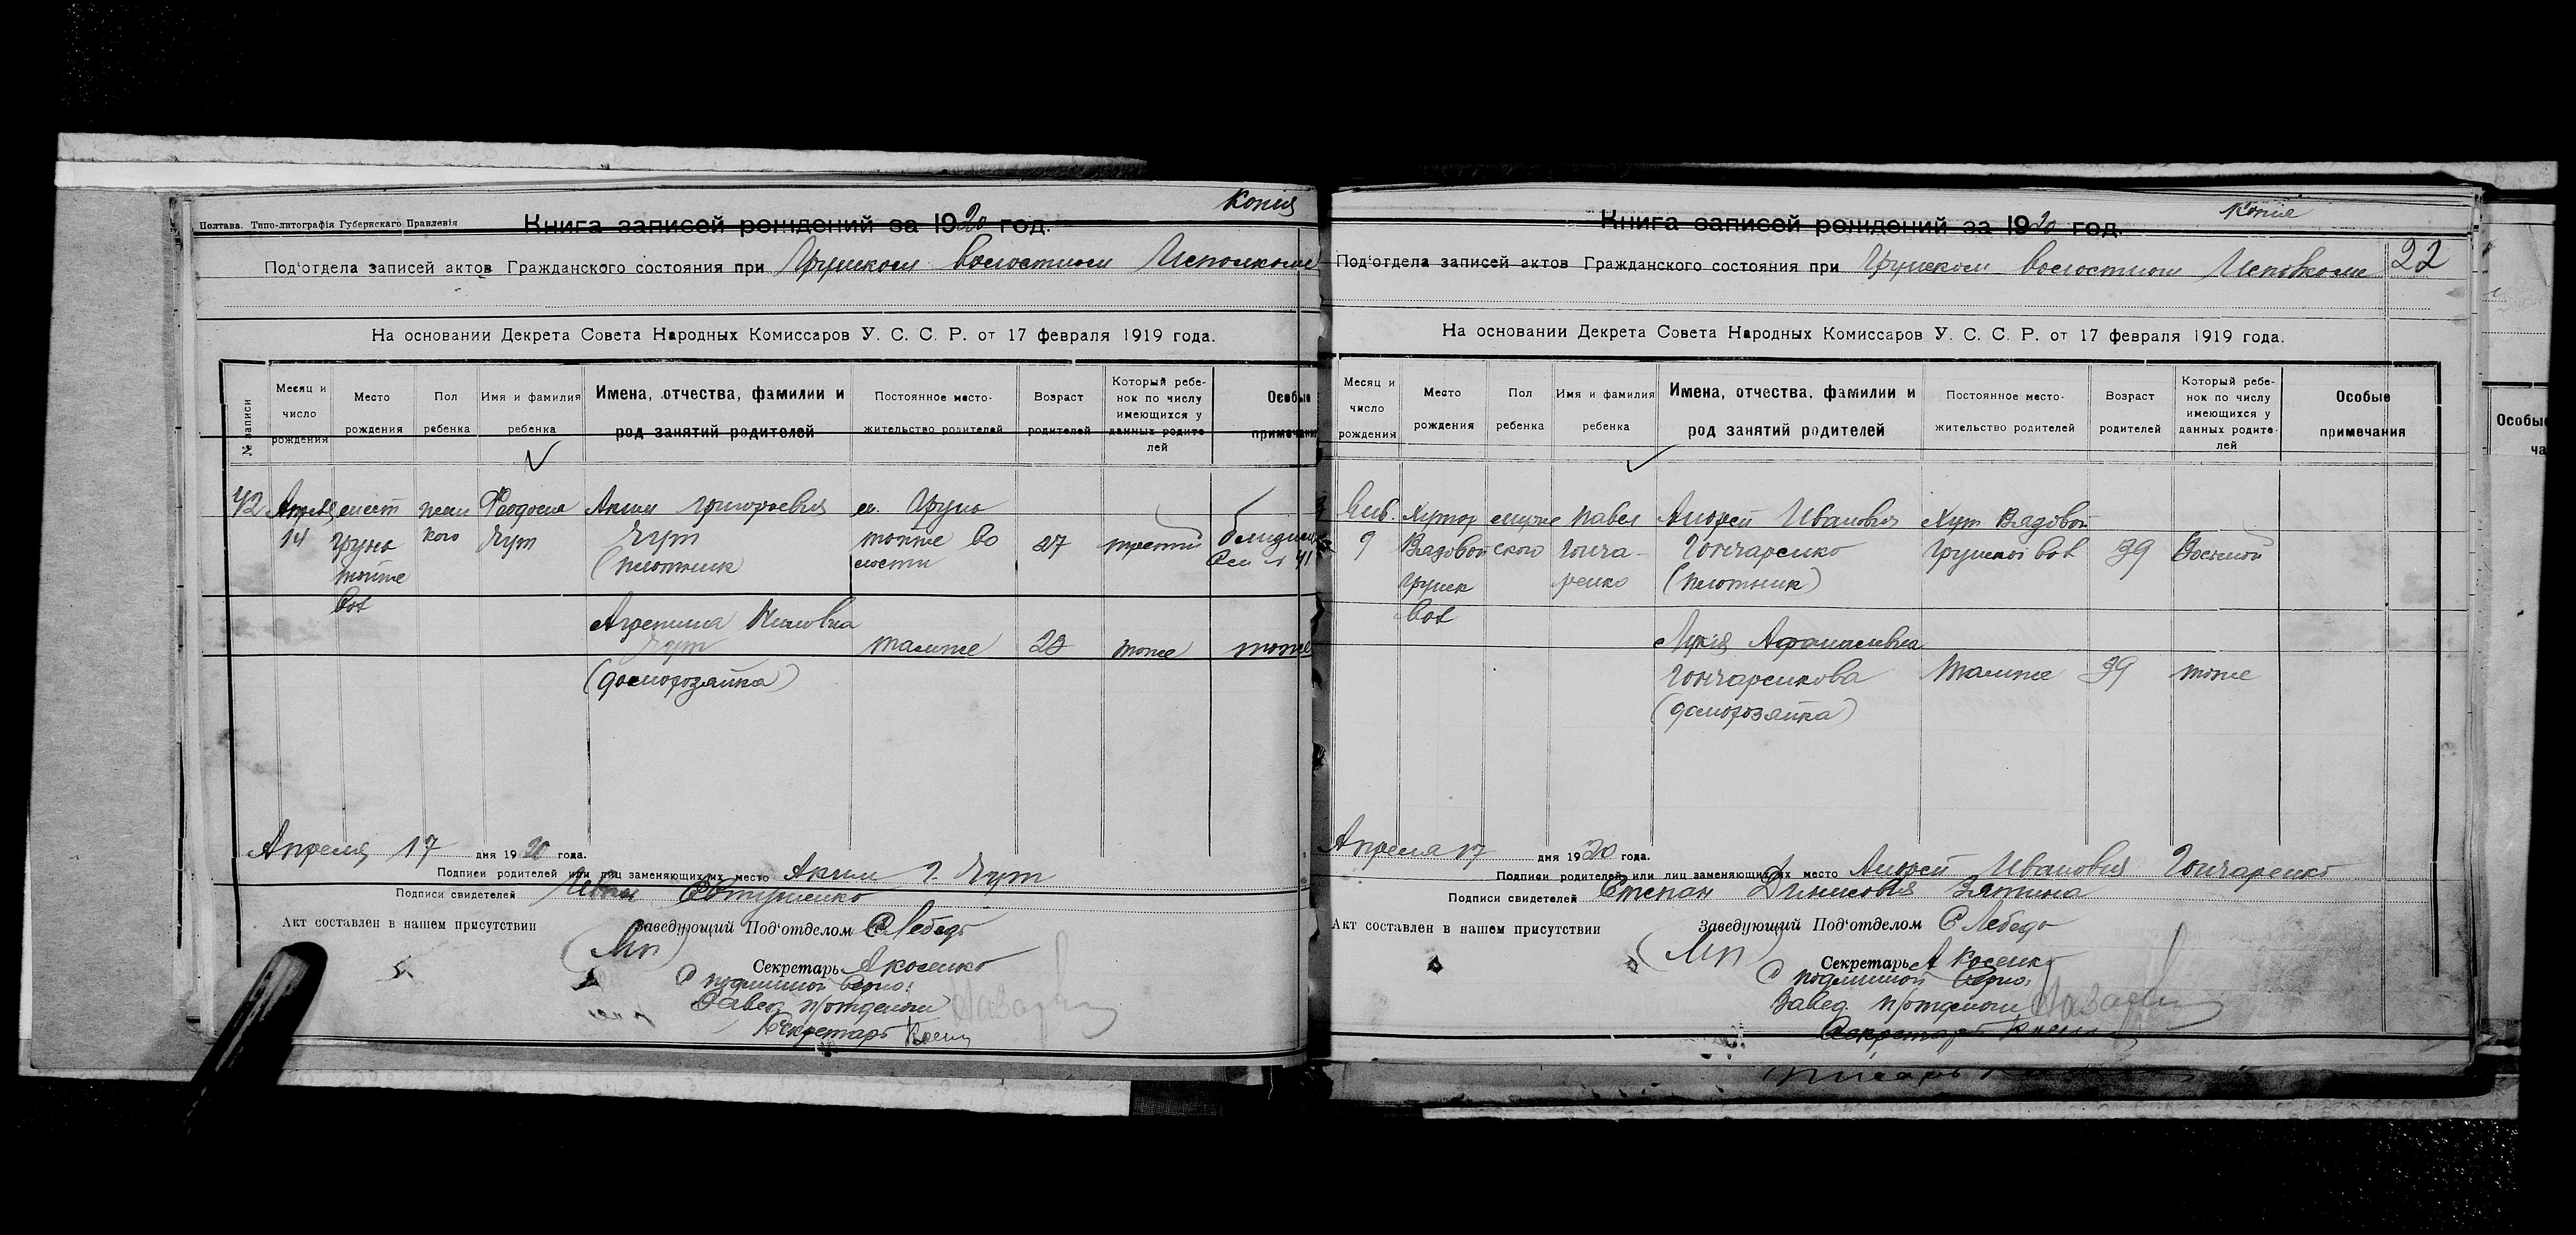 Копия
Полтава. Типо-литографія Губернскаго Правленія
Книга записей рождений за 1920 год.
Под'отдела записей актов Гражданского состояния при Грунском волостном Исполкоме
На основании Декрета Совета Народных Комиссаров У. С. С. Р. от 17 февраля 1919 года.
№ записи
Месяц и число рождения
Место рождения
Пол ребенка
Имя и фамилия ребенка
Имена, отчества, фамилии и род занятий родителей
Постоянное место-жительство родителей
Возраст родителей
Который ребе-нок по числу имеющихся у данных родите-лей
Особые примечания
42
Апреля 14
мест Грунь тойже вол
жен кого
Феодосия Чут
Аким Григорьевич
Чут
(плотник
м. Грунь
тойже во
лости
27
третий
Агрепина
Чут
(домохозяйка)
тамже
тоже
тоже
Апреля 17 дня 1920 года.
Подписи родителей или лиц заменяющих их место Аким Г. Чут
Подписи свидетелей
Акт составлен в нашем присутствии
Заведующий Под'отделом С Лебедь
(МП)
Секретарь А Косенко
С подлинной верно:
Завед. п/отделом
Секретарь
Копие
Книга записей рождений за 1920 год.
Под'отдела записей актов Гражданского состояния при Грунском волостном Исполкоме
22
На основании Декрета Совета Народных Комиссаров У. С. С. Р. от 17 февраля 1919 года.
Месяц и число рождения
Место рождения
Пол ребенка
Имя и фамилия ребенка
Имена, отчества, фамилии и род занятий родителей
Постоянное место-жительство родителей
Возраст родителей
Который ребе-нок по числу имеющихся у данных родите-лей
Особые примечания
Янв. 9
Хутор Вядовой Грунск вол
муже ского
Павел Гонча-ренко
Андрей Иванович
Гончаренко
(плотник)
Хут Вядовой
Грунской вол
39
Восьмой
Лукія Афанасьевна
Гончаренкова
(домохозяйка)
тамже
39
тоже
Апреля 17 дня 1920 года.
Подписи родителей или лиц заменяющих их место Андрей Иванович Гончаренко
Подписи свидетелей Степан Динисович Зятина
Акт составлен в нашем присутствии
Заведующий Под'отделом С Лебедь
(МП)
Секретарь А Косенко
С подлинной верно:
Завед. п/отделом
Секретарь